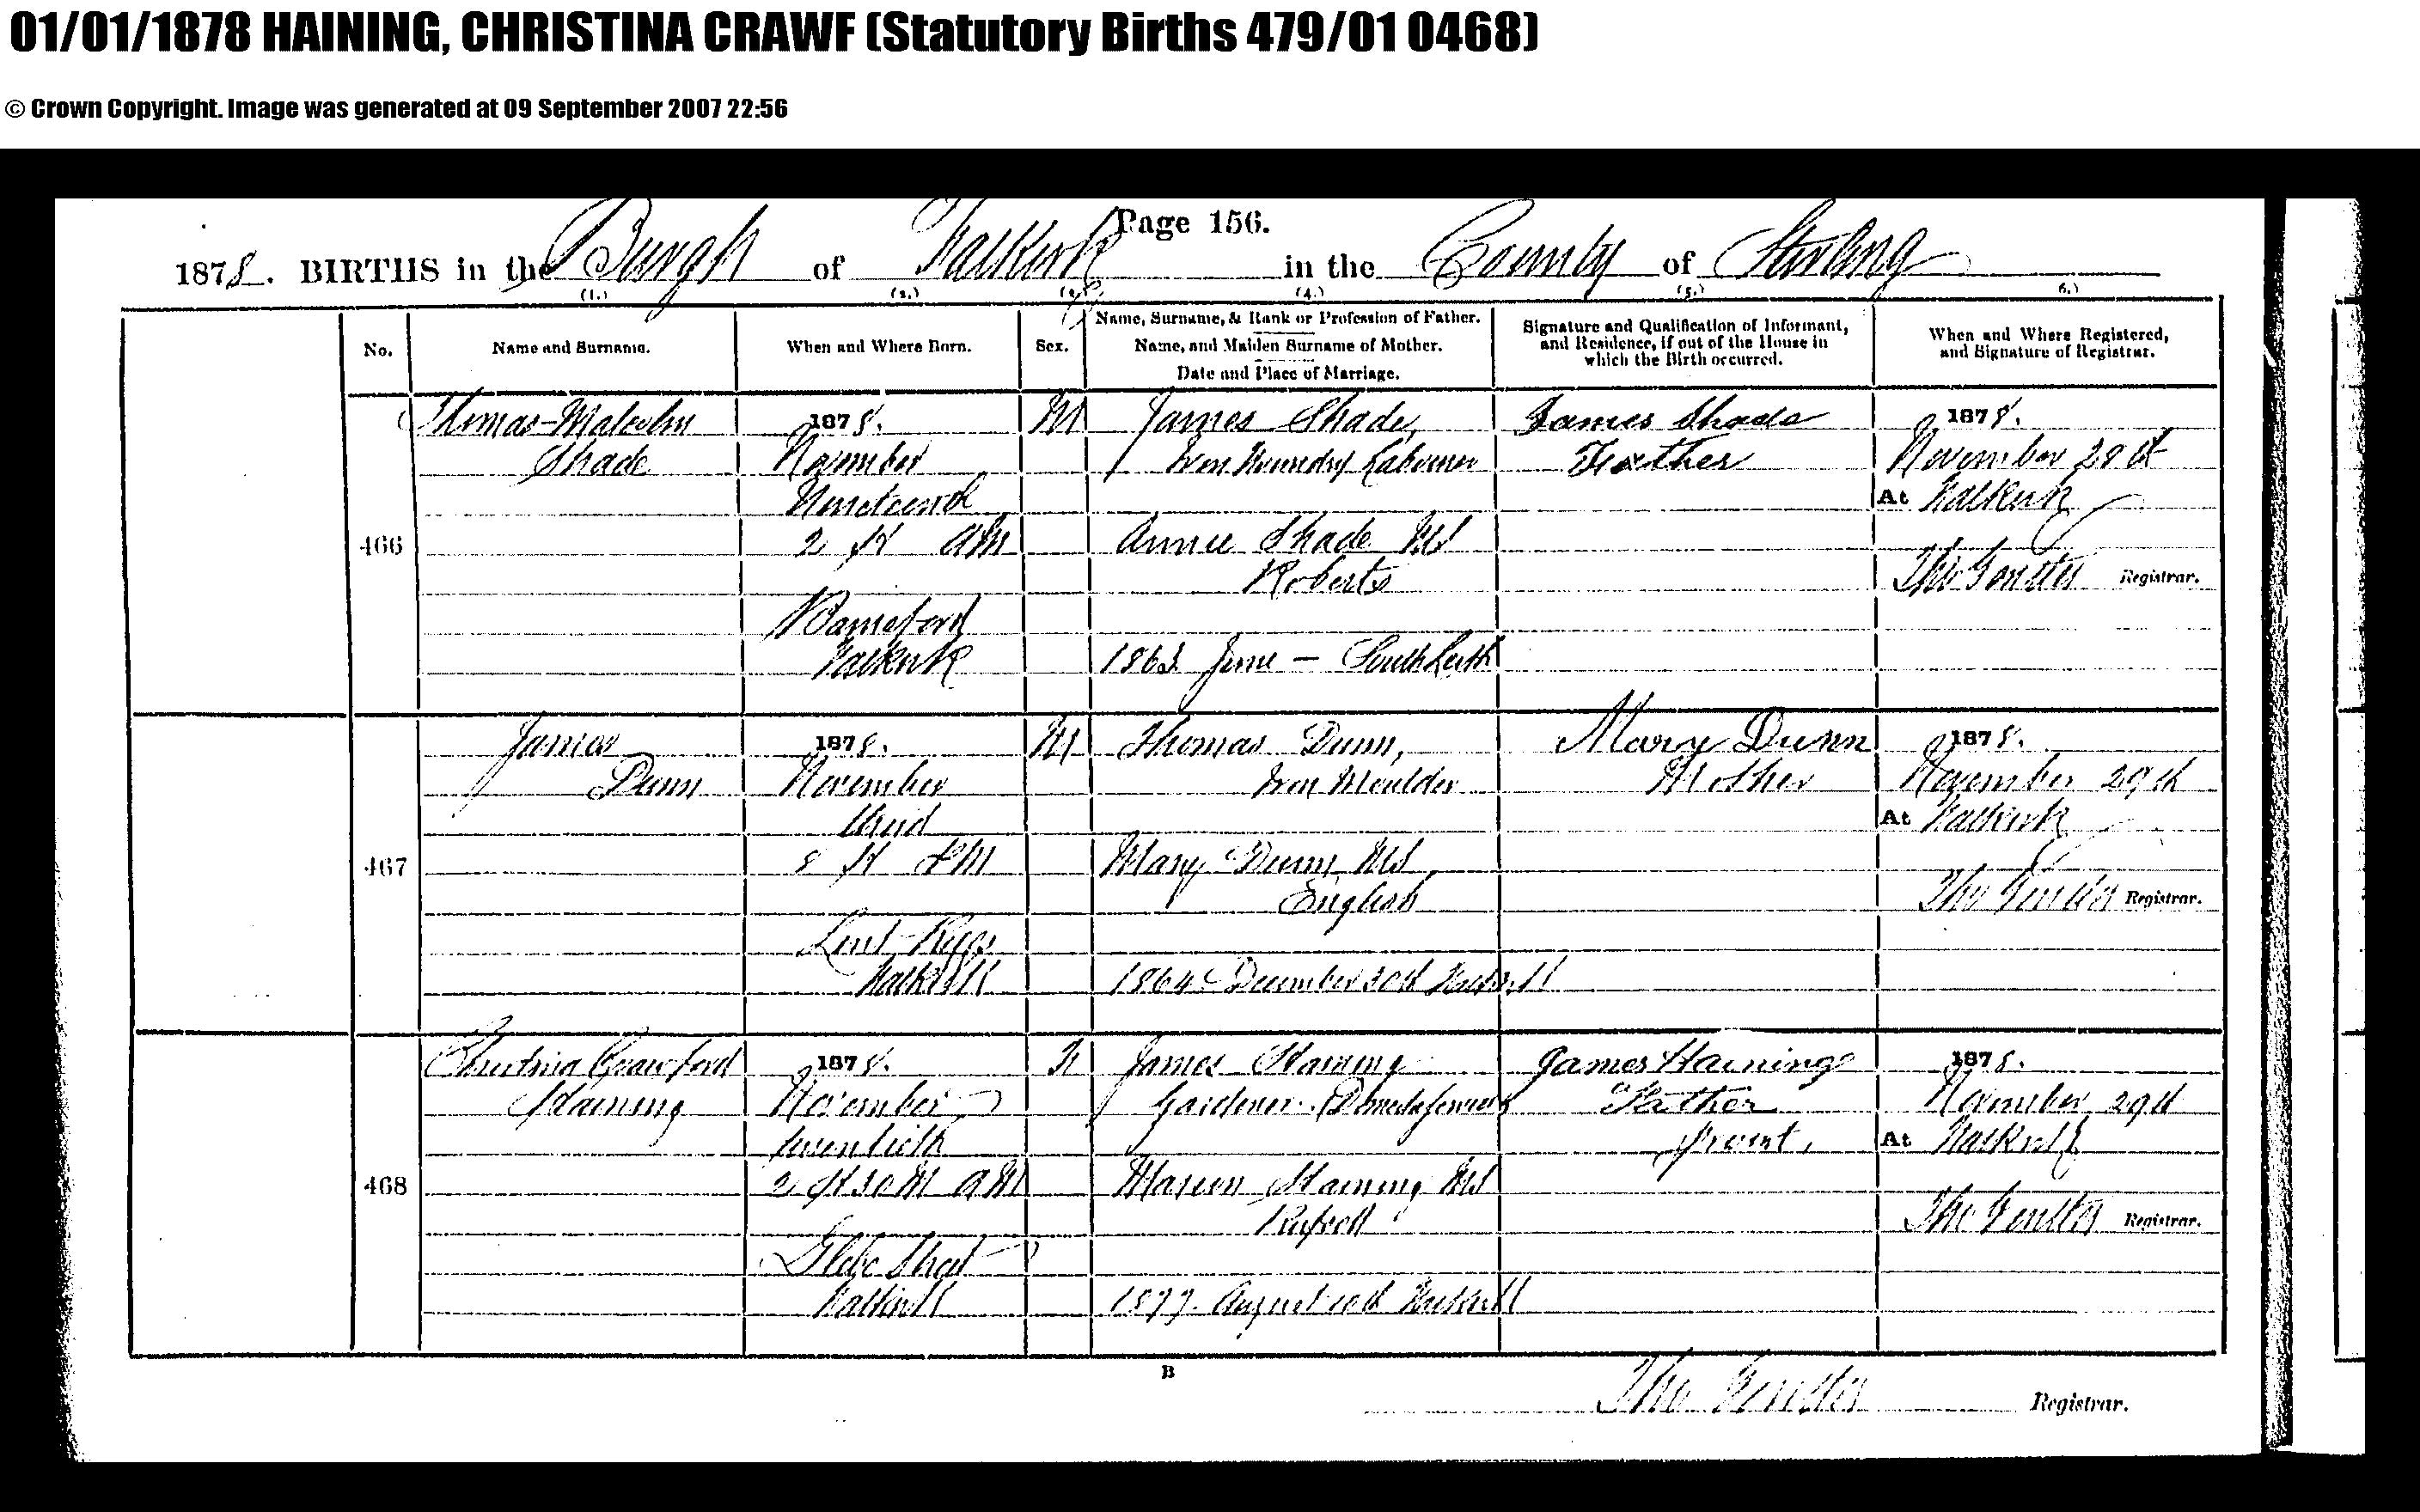 01/01/1878 HAINING, CHRISTINA CRAWF (Statutory Births 479/01 0468)
© Crown Copyright. Image was generated at 09 September 2007 22:56
Page 156.
1878. BIRTHS in the Burgh of Falkirk in the County of Stirling
(1.) (2.) (3.) (4.) (5.) 6.)
No.
Name and Surname.
When and Where Born.
Sex.
Name, Surname, & Rank or Profession of Father.
Name, and Maiden Surname of Mother.
Date and Place of Marriage.
Signature and Qualification of Informant,
and Residence, if out of the House in
which the Birth occurred.
When and Where Registered,
and Signature of Registrar.
466
Thomas Malcolm
Shade
1878.
November
Nineteenth
2 H AM
Bainsford
Falkirk
M
James Shade,
Iron Foundry Labourer
Annie Shade MS
Roberts
June – South Leith
James Shade
Father
1878.
November
At Falkirk
Registrar.
467
James
Dunn
1878.
November
third
8 H PM
Lint Riggs
Falkirk
M
Thomas Dunn,
Iron Moulder
Mary Dunn MS
English
1864 December 30th Falkirk
Mary Dunn
Mother
1878.
November 29th
At Falkirk
Registrar.
468
Christina Crawford
Haining
1878.
November
twentieth
2 H 30 M AM
Glebe Street
Falkirk
F
James Haining
Gardener (Domestic Servant)
Marion Haining MS
Russell
1877. August 10th Falkirk
James Haining
Father
present.
1878.
November 29th
At Falkirk
Registrar.
B
Registrar.